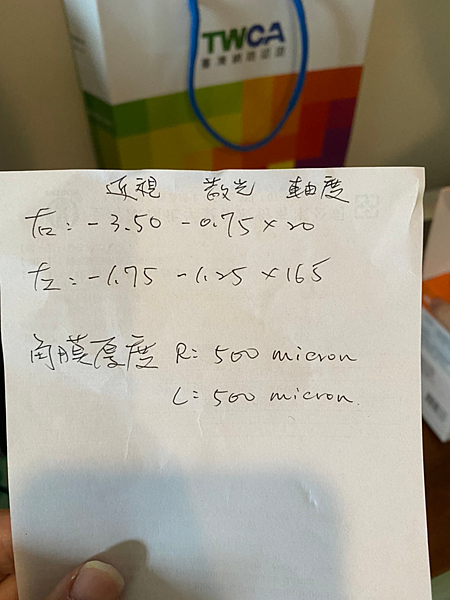 TWCA
臺灣網路認證
近視 散光 軸度
右: -3.50 -0.75 × 20
左: -1.75 -1.25 × 165
角膜厚度 R: 500 micron
L: 500 micron.